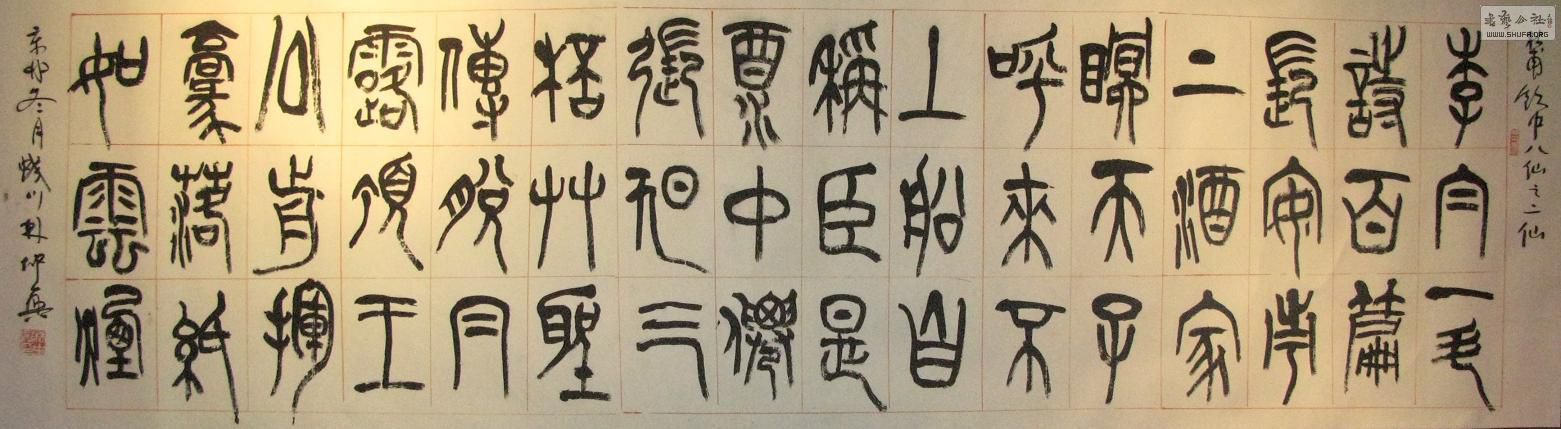 甫飲中八仙之二仙
李白一斗
詩百篇
長安市
上酒家
眠天子
呼來不
上船自
稱臣是
酒中僊
張旭三
桮艸聖
傳脫冃
露頂王
公前揮
豪落紙
如雲煙
冬月 川林仲
書藝公社
WWW.SHUFA.ORG